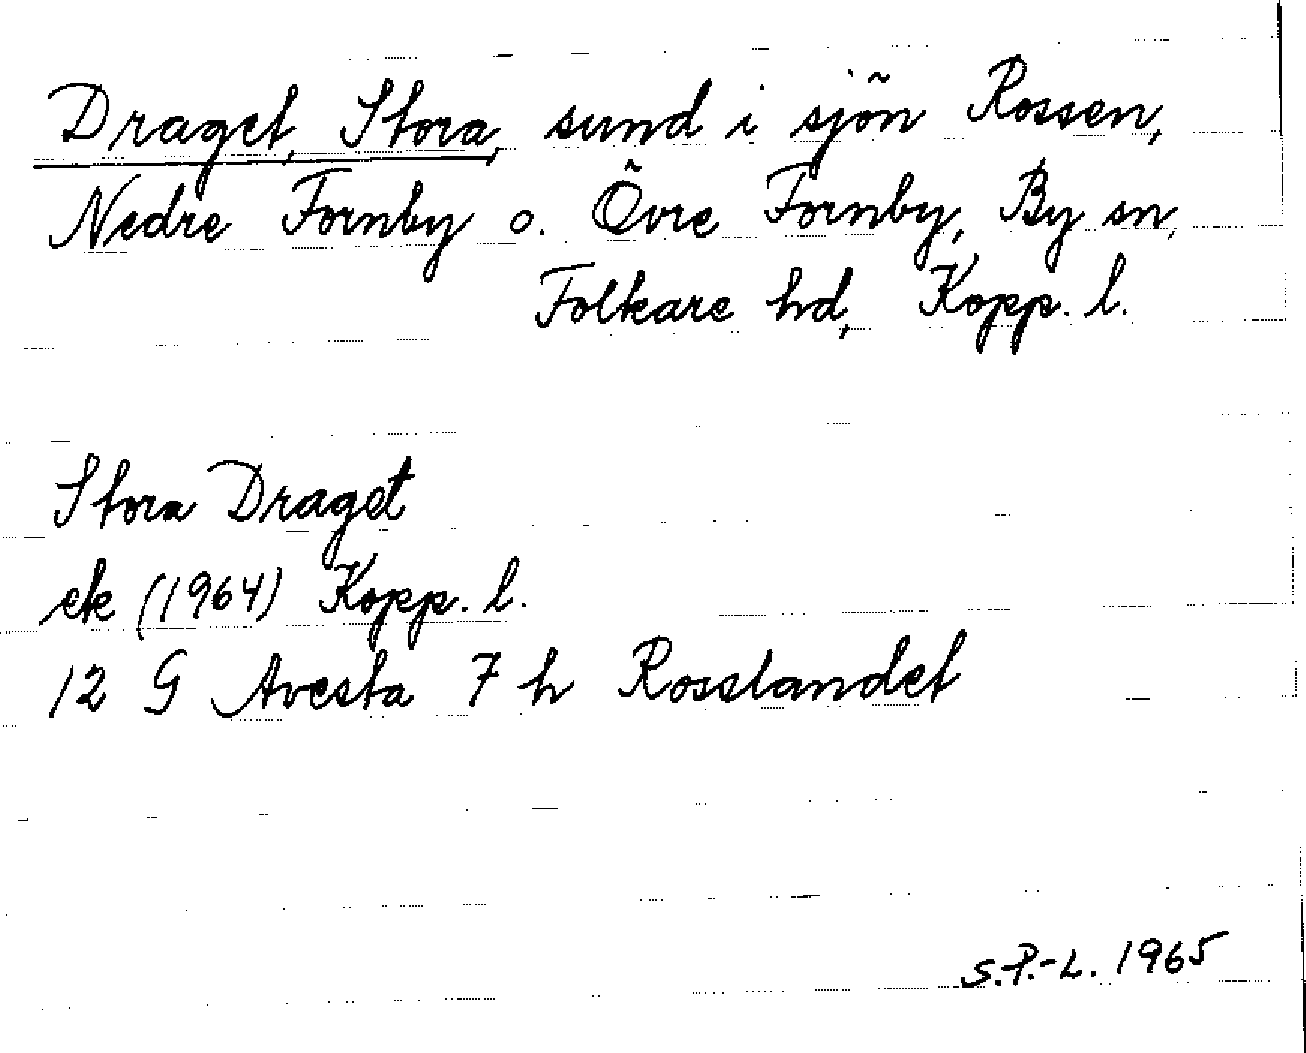 Draget, Stora, sund i sjön Rossen,
Nedre Fornby o. Övre Fornby, By sn,
Folkare hd, Kopp. l.
Stora Draget
ek (1964) Kopp. l.
12 G Avesta 7 h Rosslandet
S.P.-L. 1965